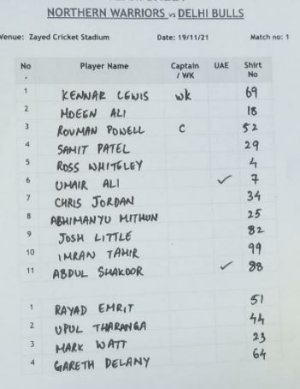 NORTHERN WARRIORS vs DELHI BULLS
Venue: Zayed Cricket Stadium Date: 19/11/21 Match no: 1
No Player Name Captain / WK UAE Shirt No
1 KENNAR LEWIS WK 69
2 MOEEN ALI 18
3 ROVMAN POWELL C 52
4 SAMIT PATEL 29
5 ROSS WHITELEY 4
6 UMAIR ALI ✓ 7
7 CHRIS JORDAN 34
8 ABHIMANYU MITHUN 25
9 JOSH LITTLE 82
10 IMRAN TAHIR 99
11 ABDUL SHAKOOR ✓ 88
1 RAYAD EMRIT 51
2 UPUL THARANGA 44
3 MARK WATT 23
4 GARETH DELANY 64